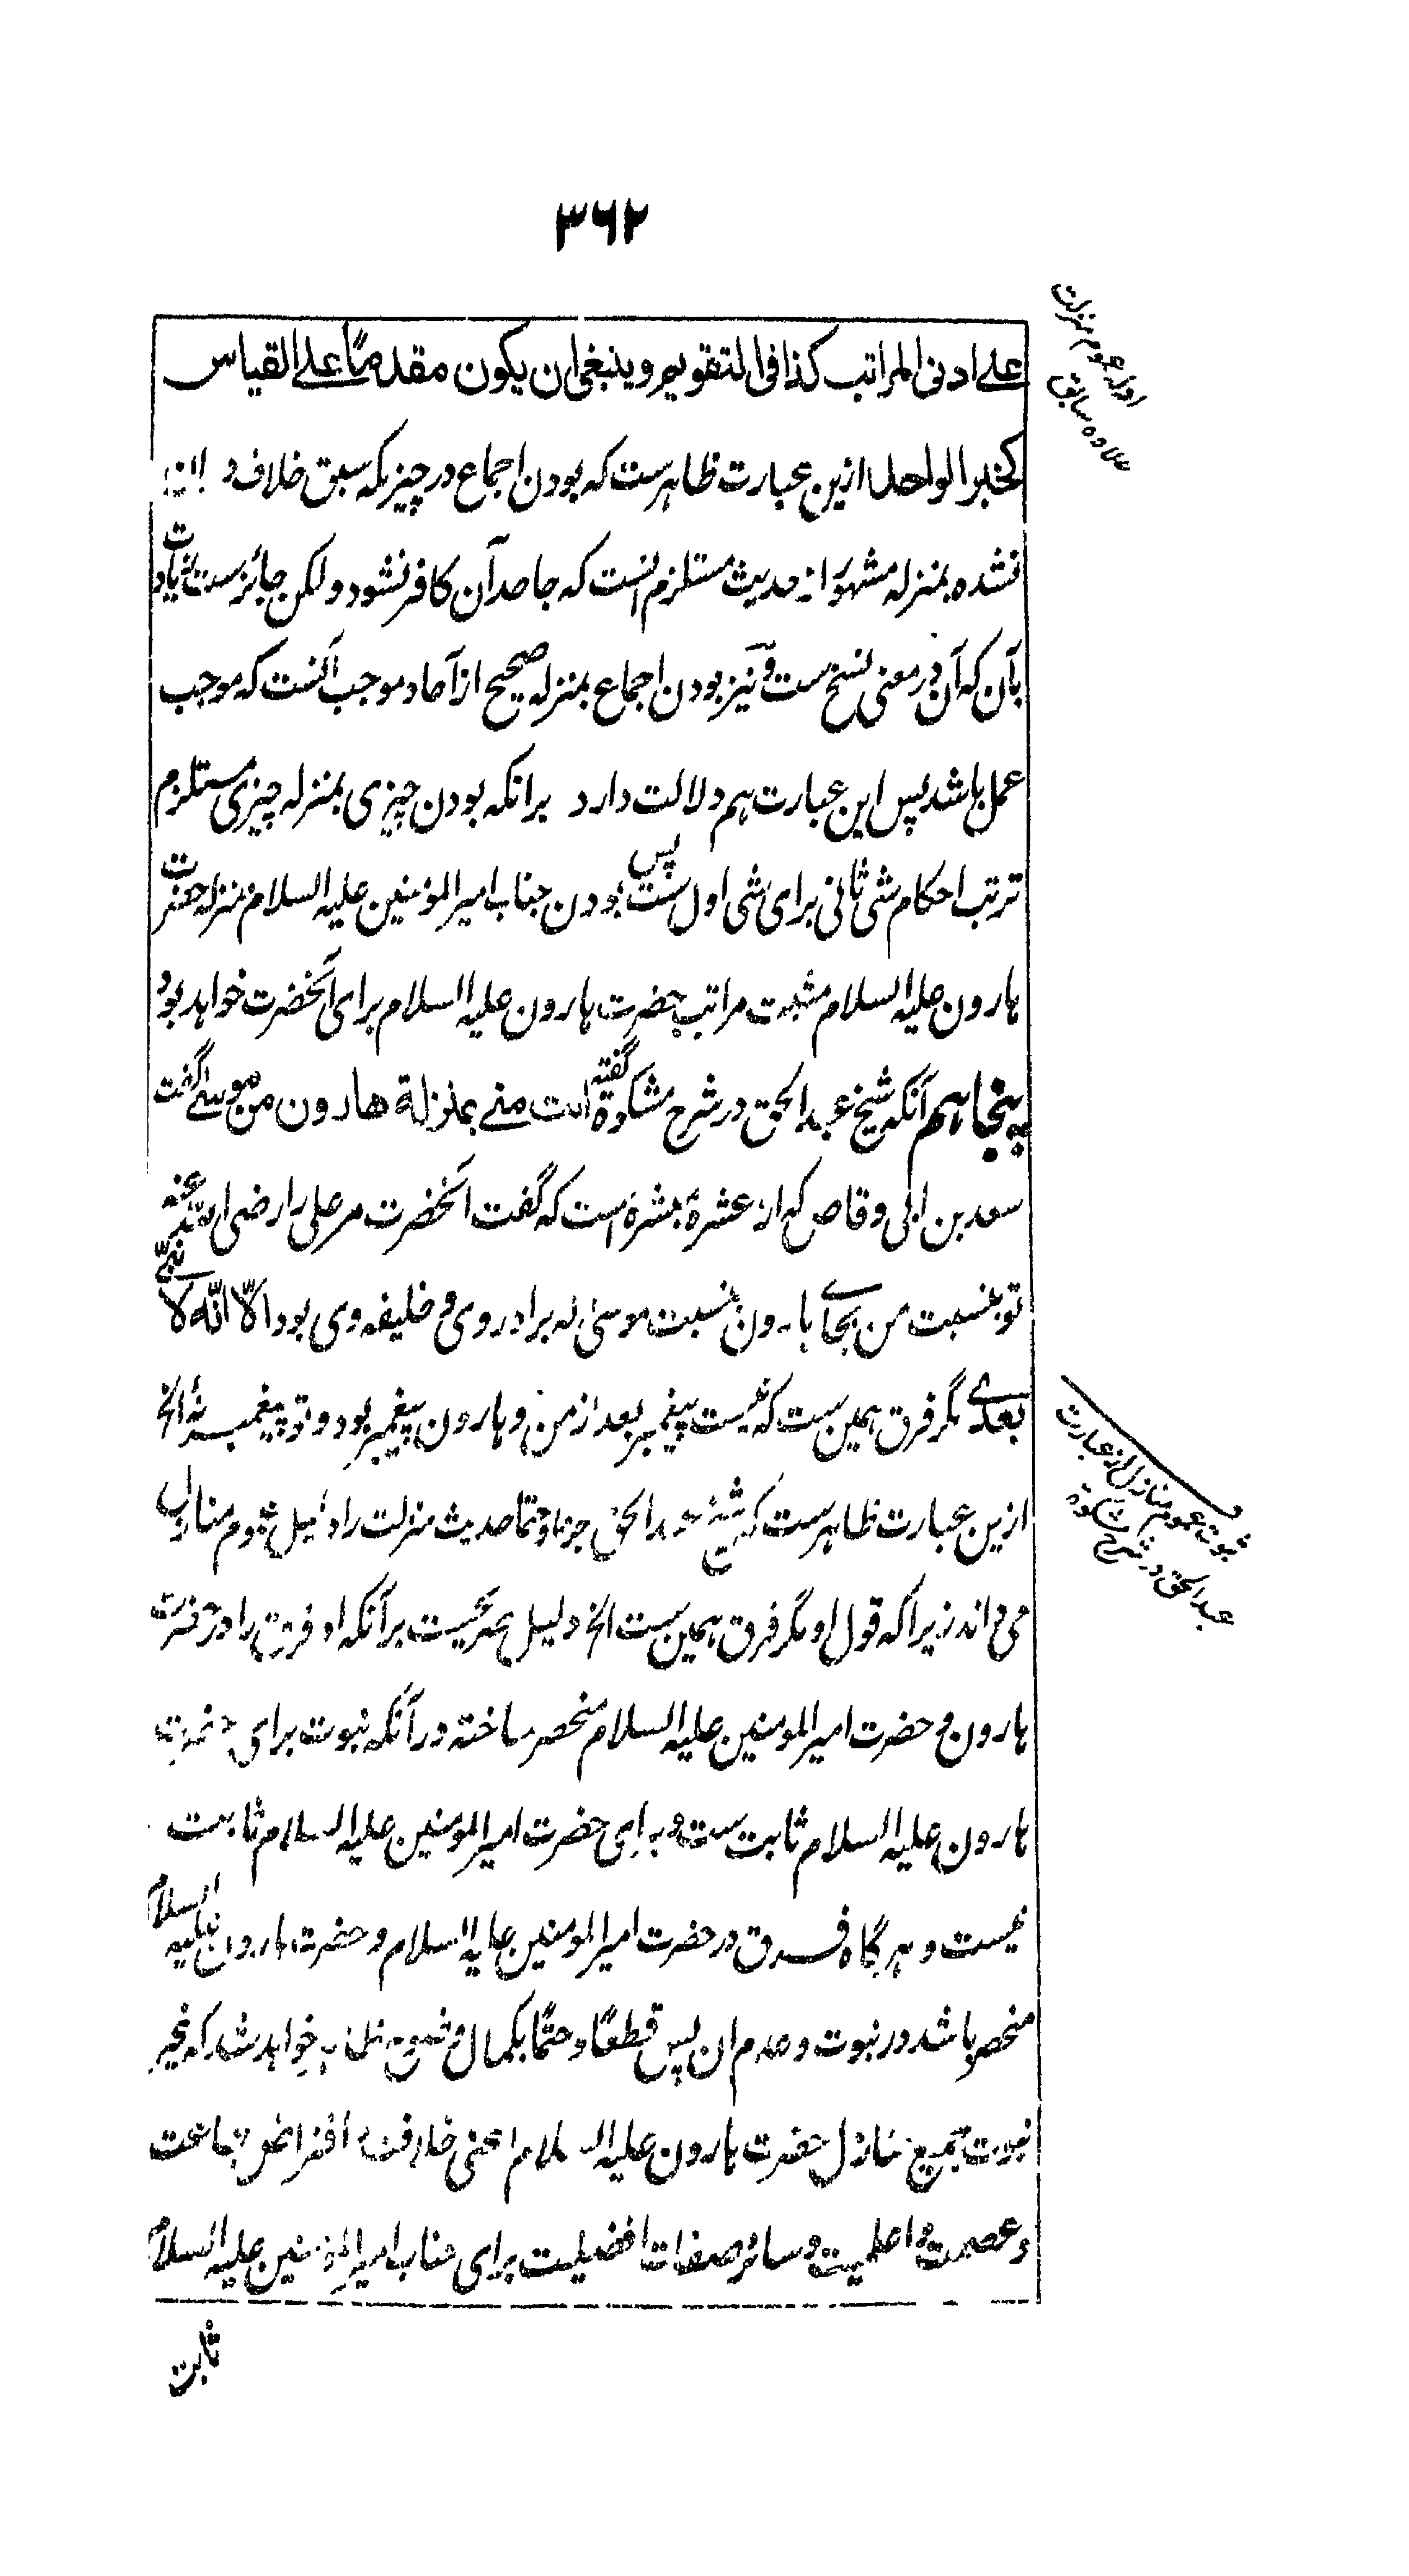 ۳۶۲
ادله عموم منزلت
علاوه سابق
على ادنى المراتب كذا فى التقويم وينبغى ان يكون مقدمًا على القياس
كخبر الواحد ازین عبارت ظاهرست که بودن اجماع در چیزیکه سبق خلاف در
نشده بمنزله مشهور از حدیث مستلزم انست که جاحد آن کافر نشود و لکن جائزست زیادت
بآن که آن در معنی نسخ ست و نیز بودن اجماع بمنزله صحیح از آحاد موجب آنست که موجب
عمل باشد پس این عبارت هم دلالت دارد برانکه بودن چیزی بمنزله چیزی مستلزم
ترتب احکام شی ثانی برای شی اول ست پس بودن جناب امیر المؤمنین علیه السلام بمنزله حضرت
هارون علیه السلام مثبت مراتب حضرت هارون علیه السلام برای آنحضرت خواهد بود
پنجاهم آنکه شیخ عبد الحق در شرح مشکوة گفته انت منى بمنزلة هارون من موسى گفت
سعد بن ابی وقاص که از عشرهٔ مبشره است که گفت آنحضرت مر علی را رضی الله عنه
تو بنسبت من بجاے هارون بنسبت موسیٰ که برادر وی و خلیفه وی بود الّا انّه لا نبىّ
بعدى مگر فرق همین ست که نیست پیغمبر بعد از من و هارون پیغمبر بود و تو پیغمبر نهٔ الخ
ازین عبارت ظاهرست که شیخ عبد الحق جزما و حتما حدیث منزلت را دلیل عموم منازل
می داند زیرا که قول او مگر فرق همین ست الخ دلیل صریحست برآنکه او فرق را در حضرت
ثبوت عموم منازل از عبارت
عبد الحق در شرح مشکوة
هارون و حضرت امیر المومنین علیه السلام منحصر ساخته در آنکه نبوت برای حضرت
هارون علیه السلام ثابت ست و برای حضرت امیر المومنین علیه السلام ثابت
نیست و هر گاه فرق در حضرت امیر المومنین علیه السلام و حضرت هارون علیه السلام
منحصر باشد در نبوت و عدم ان پس قطعًا و حتمًا بکمال وضوح ظاهر خواهد شد که غیر
نبوت جمیع منازل حضرت هارون علیه السلام اعنی خلافت و افتراض طاعت
و عصمت و اعلمیت و سائر صفات افضلیت برای جناب امیر المؤمنین علیه السلام
ثابت